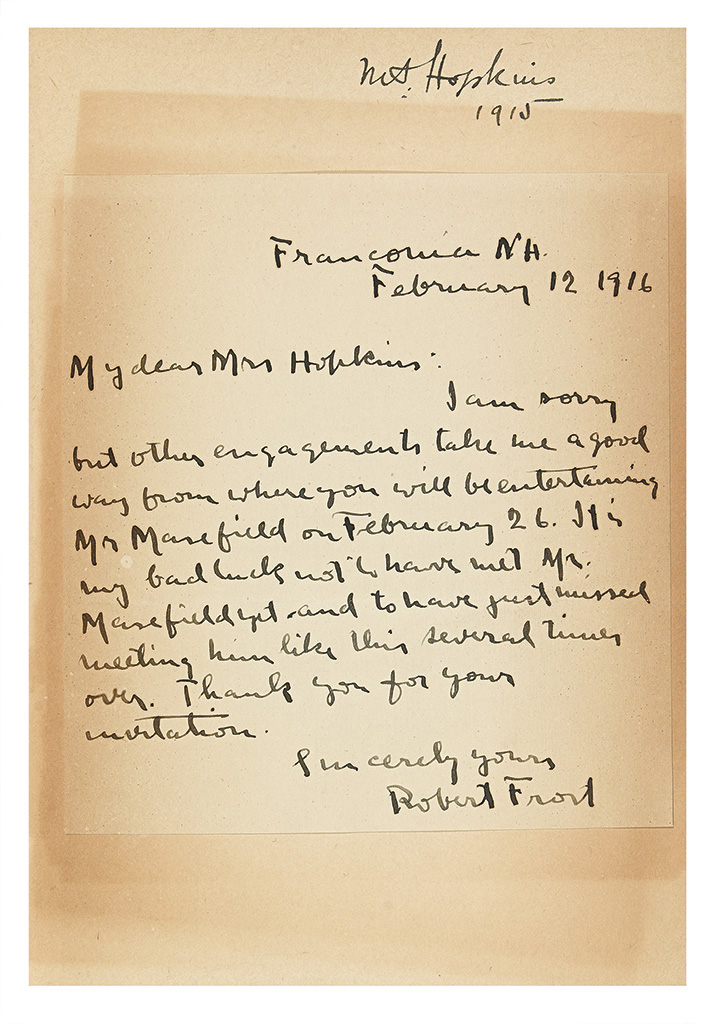 M.S. Hopkins
1915
Franconia N.H.
February 12 1916
My dear Mrs Hopkins:
I am sorry
but other engagements take me a good
way from where you will be entertaining
Mr Masefield on February 26. It is
my bad luck not to have met Mr.
Masefield yet and to have just missed
meeting him like this several times
over. Thank you for your
invitation.
Sincerely yours
Robert Frost